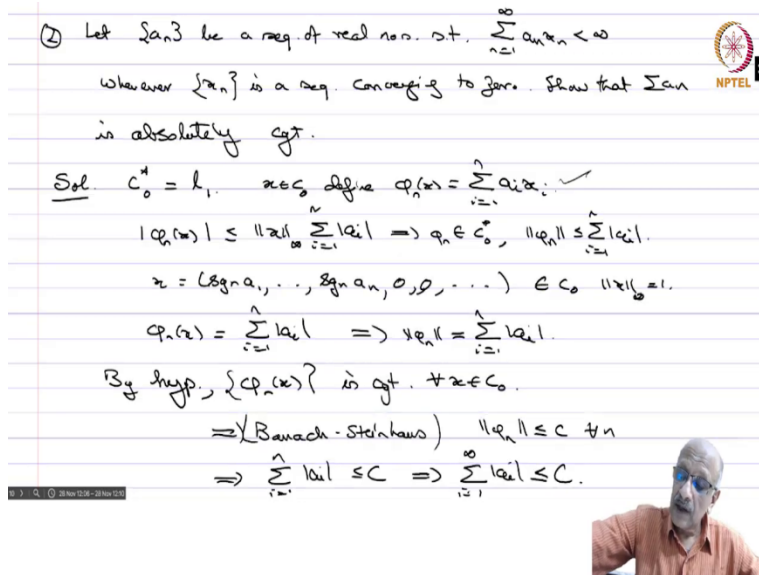 ② Let {aₙ} be a seq. of real nos. s.t. ∑_{n=1}^{∞} aₙxₙ < ∞
whenever {xₙ} is a seq. converging to zero. Show that Σaₙ
NPTEL
is absolutely cgt.
Sol. C₀* = l₁. x∈C₀ define φₙ(x) = ∑_{i=1}^{n} aᵢxᵢ ✓
|φₙ(x)| ≤ ‖x‖_∞ ∑_{i=1}^{n} |aᵢ| ⇒ φₙ ∈ C₀*, ‖φₙ‖ ≤ ∑_{i=1}^{n} |aᵢ|.
x = (sgn a₁, .., sgn aₙ, 0, 0, ...) ∈ C₀ ‖x‖_∞ = 1.
φₙ(x) = ∑_{i=1}^{n} |aᵢ| ⇒ ‖φₙ‖ = ∑_{i=1}^{n} |aᵢ|.
By hyp., {φₙ(x)} is cgt. ∀x∈C₀.
⇒ (Banach-Steinhaus) ‖φₙ‖ ≤ C ∀n
⇒ ∑_{i=1}^{n} |aᵢ| ≤ C ⇒ ∑_{i=1}^{∞} |aᵢ| ≤ C.
28 Nov 12:08 - 28 Nov 12:10